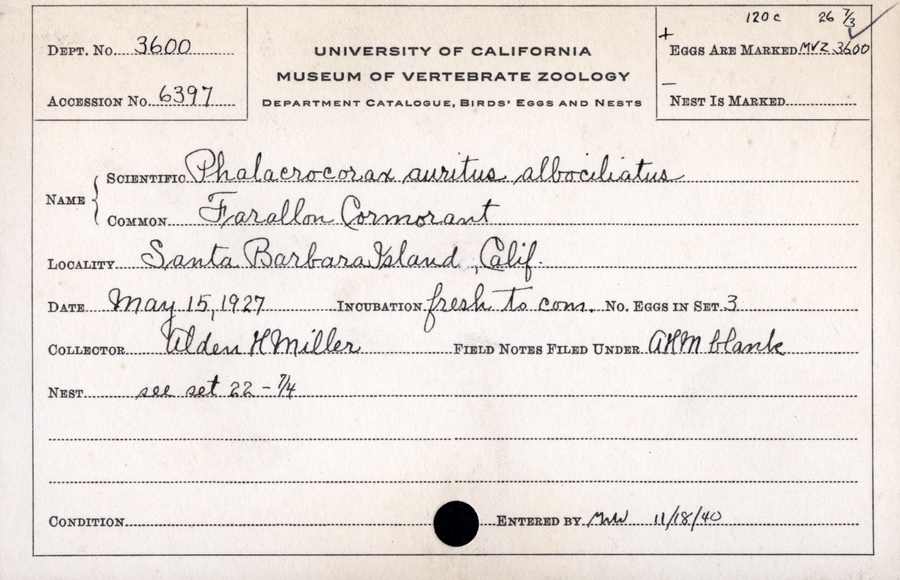 120c 26 7/3
DEPT. NO. 3600
UNIVERSITY OF CALIFORNIA
+
EGGS ARE MARKED MVZ 3600
MUSEUM OF VERTEBRATE ZOOLOGY
ACCESSION NO. 6397
DEPARTMENT CATALOGUE, BIRDS' EGGS AND NESTS
—
NEST IS MARKED
NAME { SCIENTIFIC Phalacrocorax auritus albociliatus
COMMON Farallon Cormorant
LOCALITY Santa Barbara Island, Calif.
DATE May 15, 1927 INCUBATION fresh to com. NO. EGGS IN SET 3
COLLECTOR Alden H Miller FIELD NOTES FILED UNDER AHM blank
NEST see set 22 - 7/4
CONDITION ENTERED BY 11/18/40